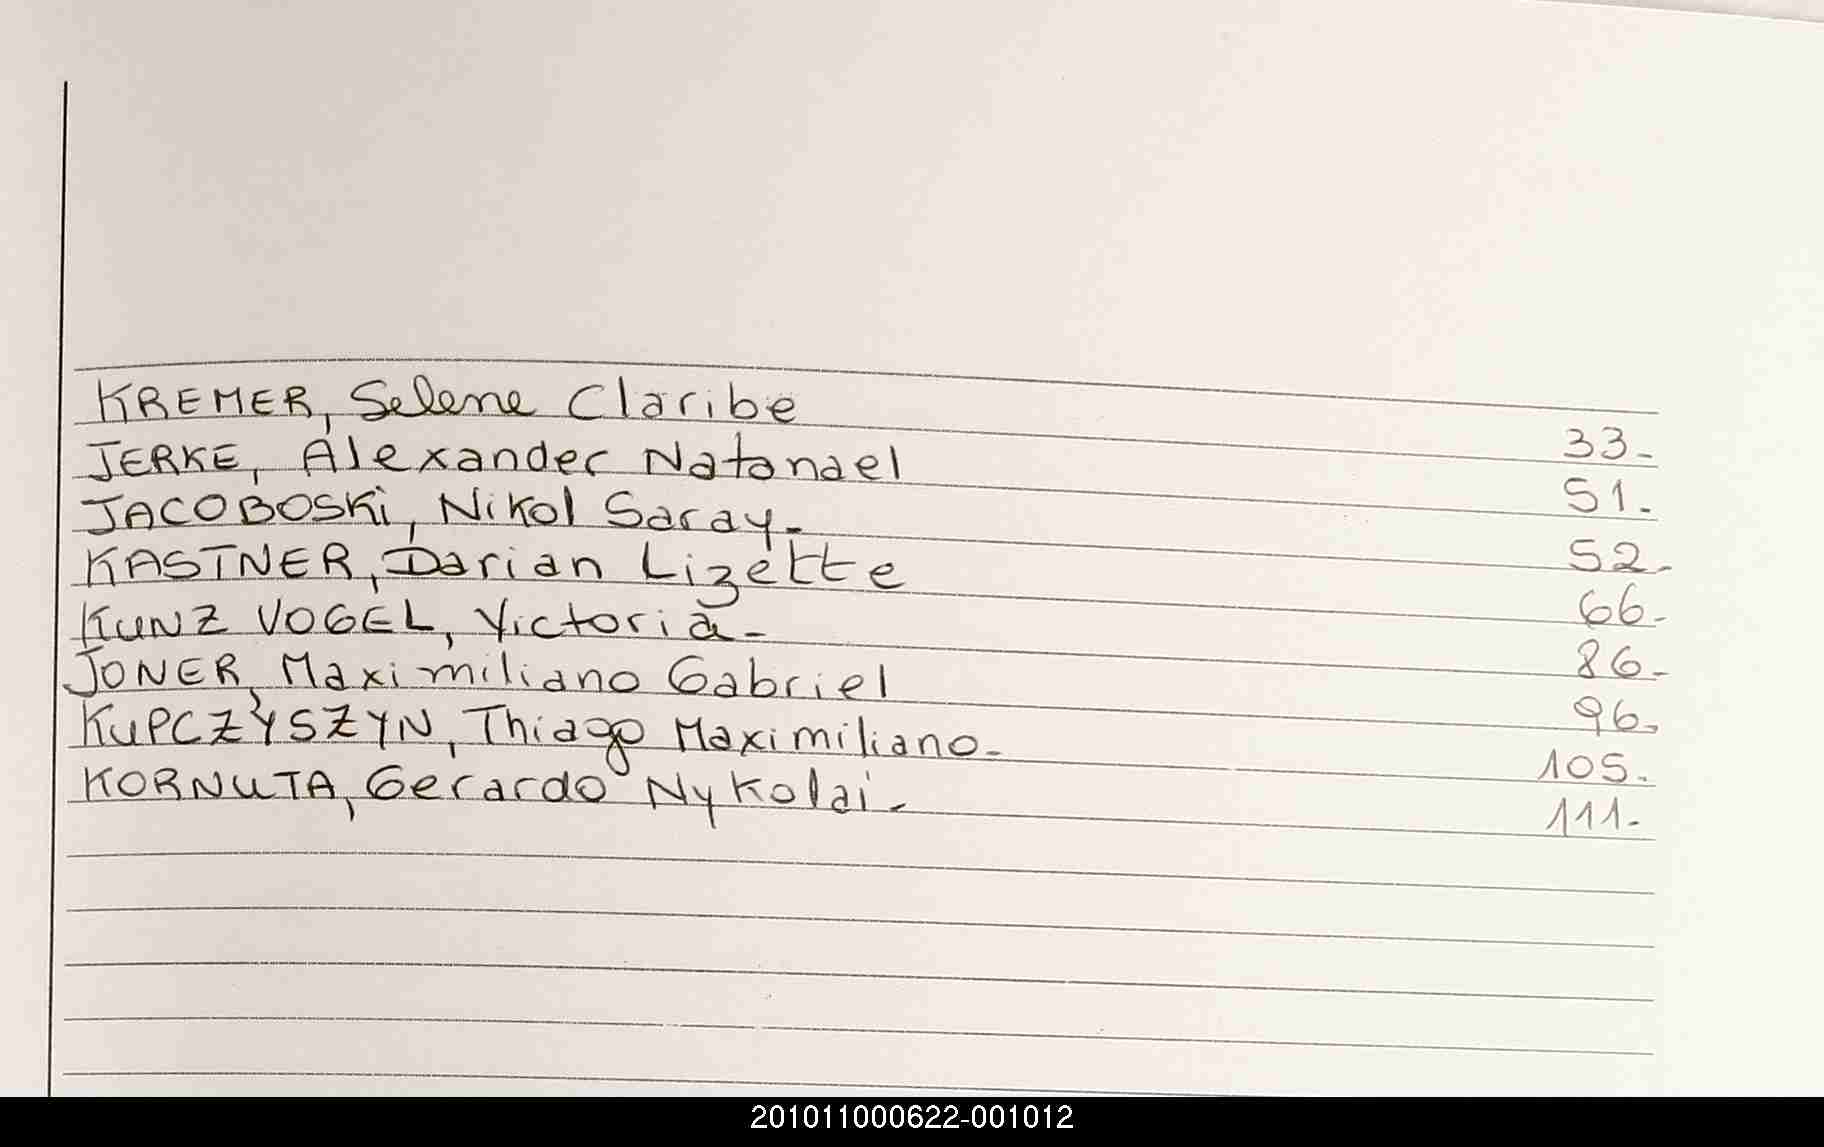 KREMER, Selene Claribe 33.
JERKE, Alexander Natanael 51.
JACOBOSKi, Nikol Saray. 52.
KASTNER, Darian Lizette 66.
KUNZ VOGEL, Victoria. 86.
JONER, Maximiliano Gabriel 96.
KUPCZYSZYN, Thiago Maximiliano. 105.
KORNUTA, Gerardo Nykolai. 111.
201011000622-001012